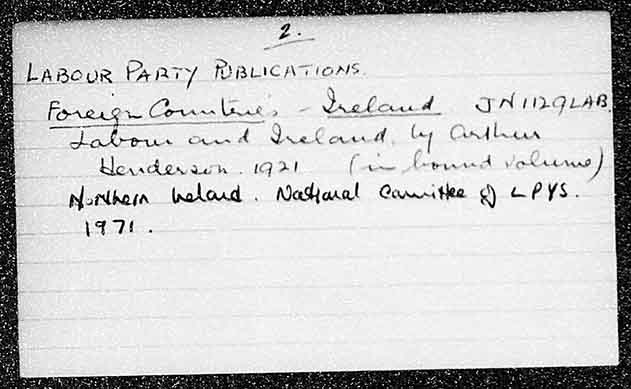 2.
LABOUR PARTY PUBLICATIONS.
Foreign Countries - Ireland JN1129LAB.
Labour and Ireland, by Arthur
Henderson. 1921 (in bound volume)
Northern Ireland. National Committee of LPYS.
1971.